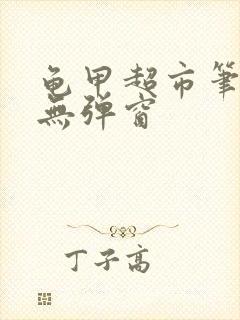 龟甲超市笔
無弹窗
丁子高